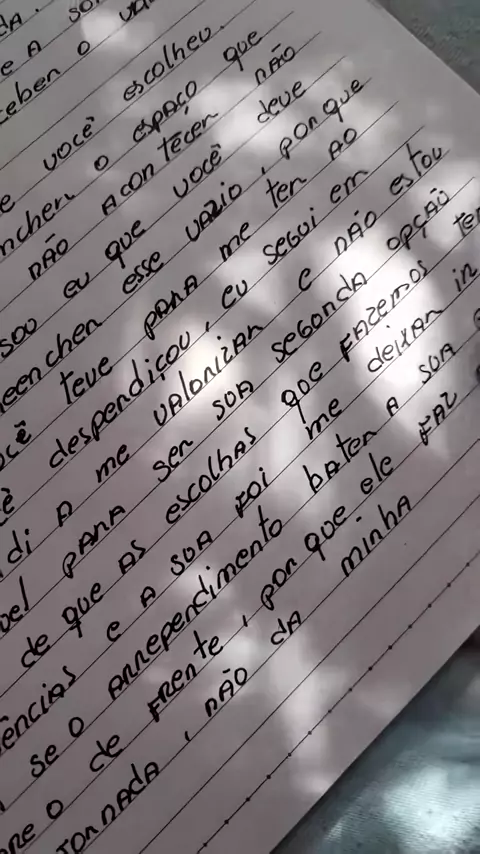 DA.
e A
ceben o
e você escolheu.
nchen o espaço que
não acontecen não
sou eu que você deve
eenchen esse vazio, porque
ocê teve para me ter ao
ê despendiçou, eu segui em
di a me valorizar e não estou
vel para ser sua segunda opção
de que as escolhas que fazemos
ências e a sua foi me deixar
se o arrependimento bater a sua
de frente, porque ele faz
jornada, não da minha